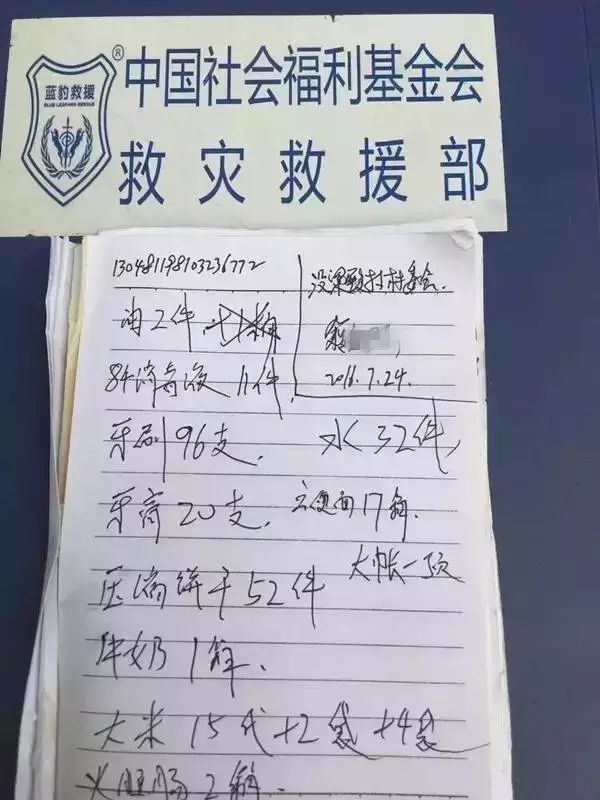 蓝豹救援
BLUE LEOPARD RESCUE
®
中国社会福利基金会
救灾救援部
130481198103236772
没梁殿村村委会.
油2件
2016.7.24.
84消毒液 11件
牙刷96支.
水32件
牙膏20支.
方便面17箱.
大帐一顶
压缩饼干52件
牛奶1箱.
大米15代+2袋+4袋
火腿肠2箱.